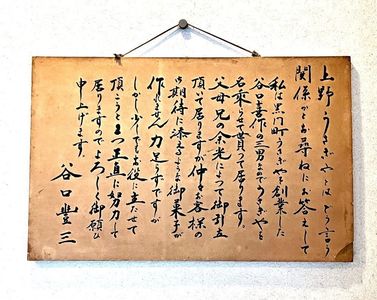 上野うさぎやとはどう言う
関係かとお尋ねにお答えして
私は黒門町うさぎやを創業した
谷口喜作の三男でうさぎやと
名乗らせて貰って居ります。
父母兄の余光によって御引立
頂いて居りますが仲々お客様の
御期待に添えるような御菓子が
作れません力足らずですが
しかし少しでもお役に立たせて
頂こうと正直に努力して
居りますのでよろしく御願ひ
申上げます。
谷口豊三